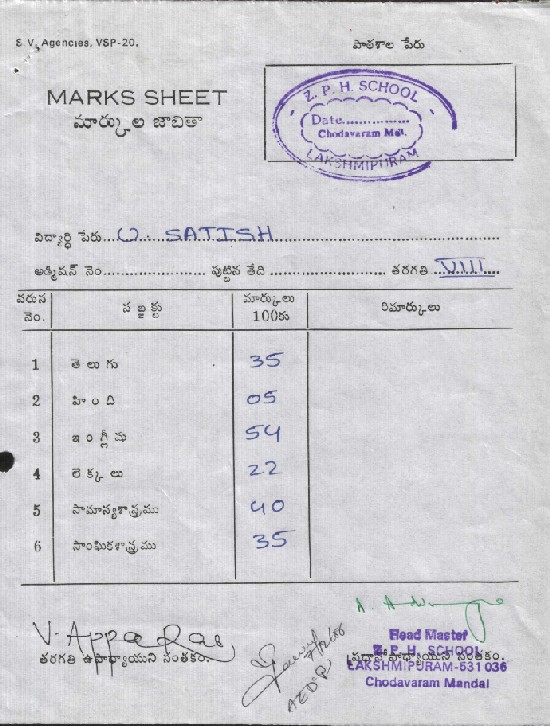 S.V. Agencies, VSP-20.
పాఠశాల పేరు
MARKS SHEET
మార్కుల జాబితా
Z. P. H. SCHOOL
Date...............
Chodavaram Mdl.
LAKSHMIPURAM
విద్యార్థి పేరు U. SATISH
అడ్మిషన్ నెం. పుట్టిన తేది తరగతి VIII
వరుస నెం. సబ్జక్టు మార్కులు 100కు రిమార్కులు
1 తెలుగు 35
2 హింది 05
3 ఇంగ్లీషు 54
4 లెక్కలు 22
5 సామాన్యశాస్త్రము 40
6 సాంఘికశాస్త్రము 35
V. Appa Rao
తరగతి ఉపాధ్యాయుని సంతకం.
Head Master
Z. P. H. SCHOOL
ప్రధానోపాధ్యాయుని సంతకం.
LAKSHMIPURAM-531 036
Chodavaram Mandal